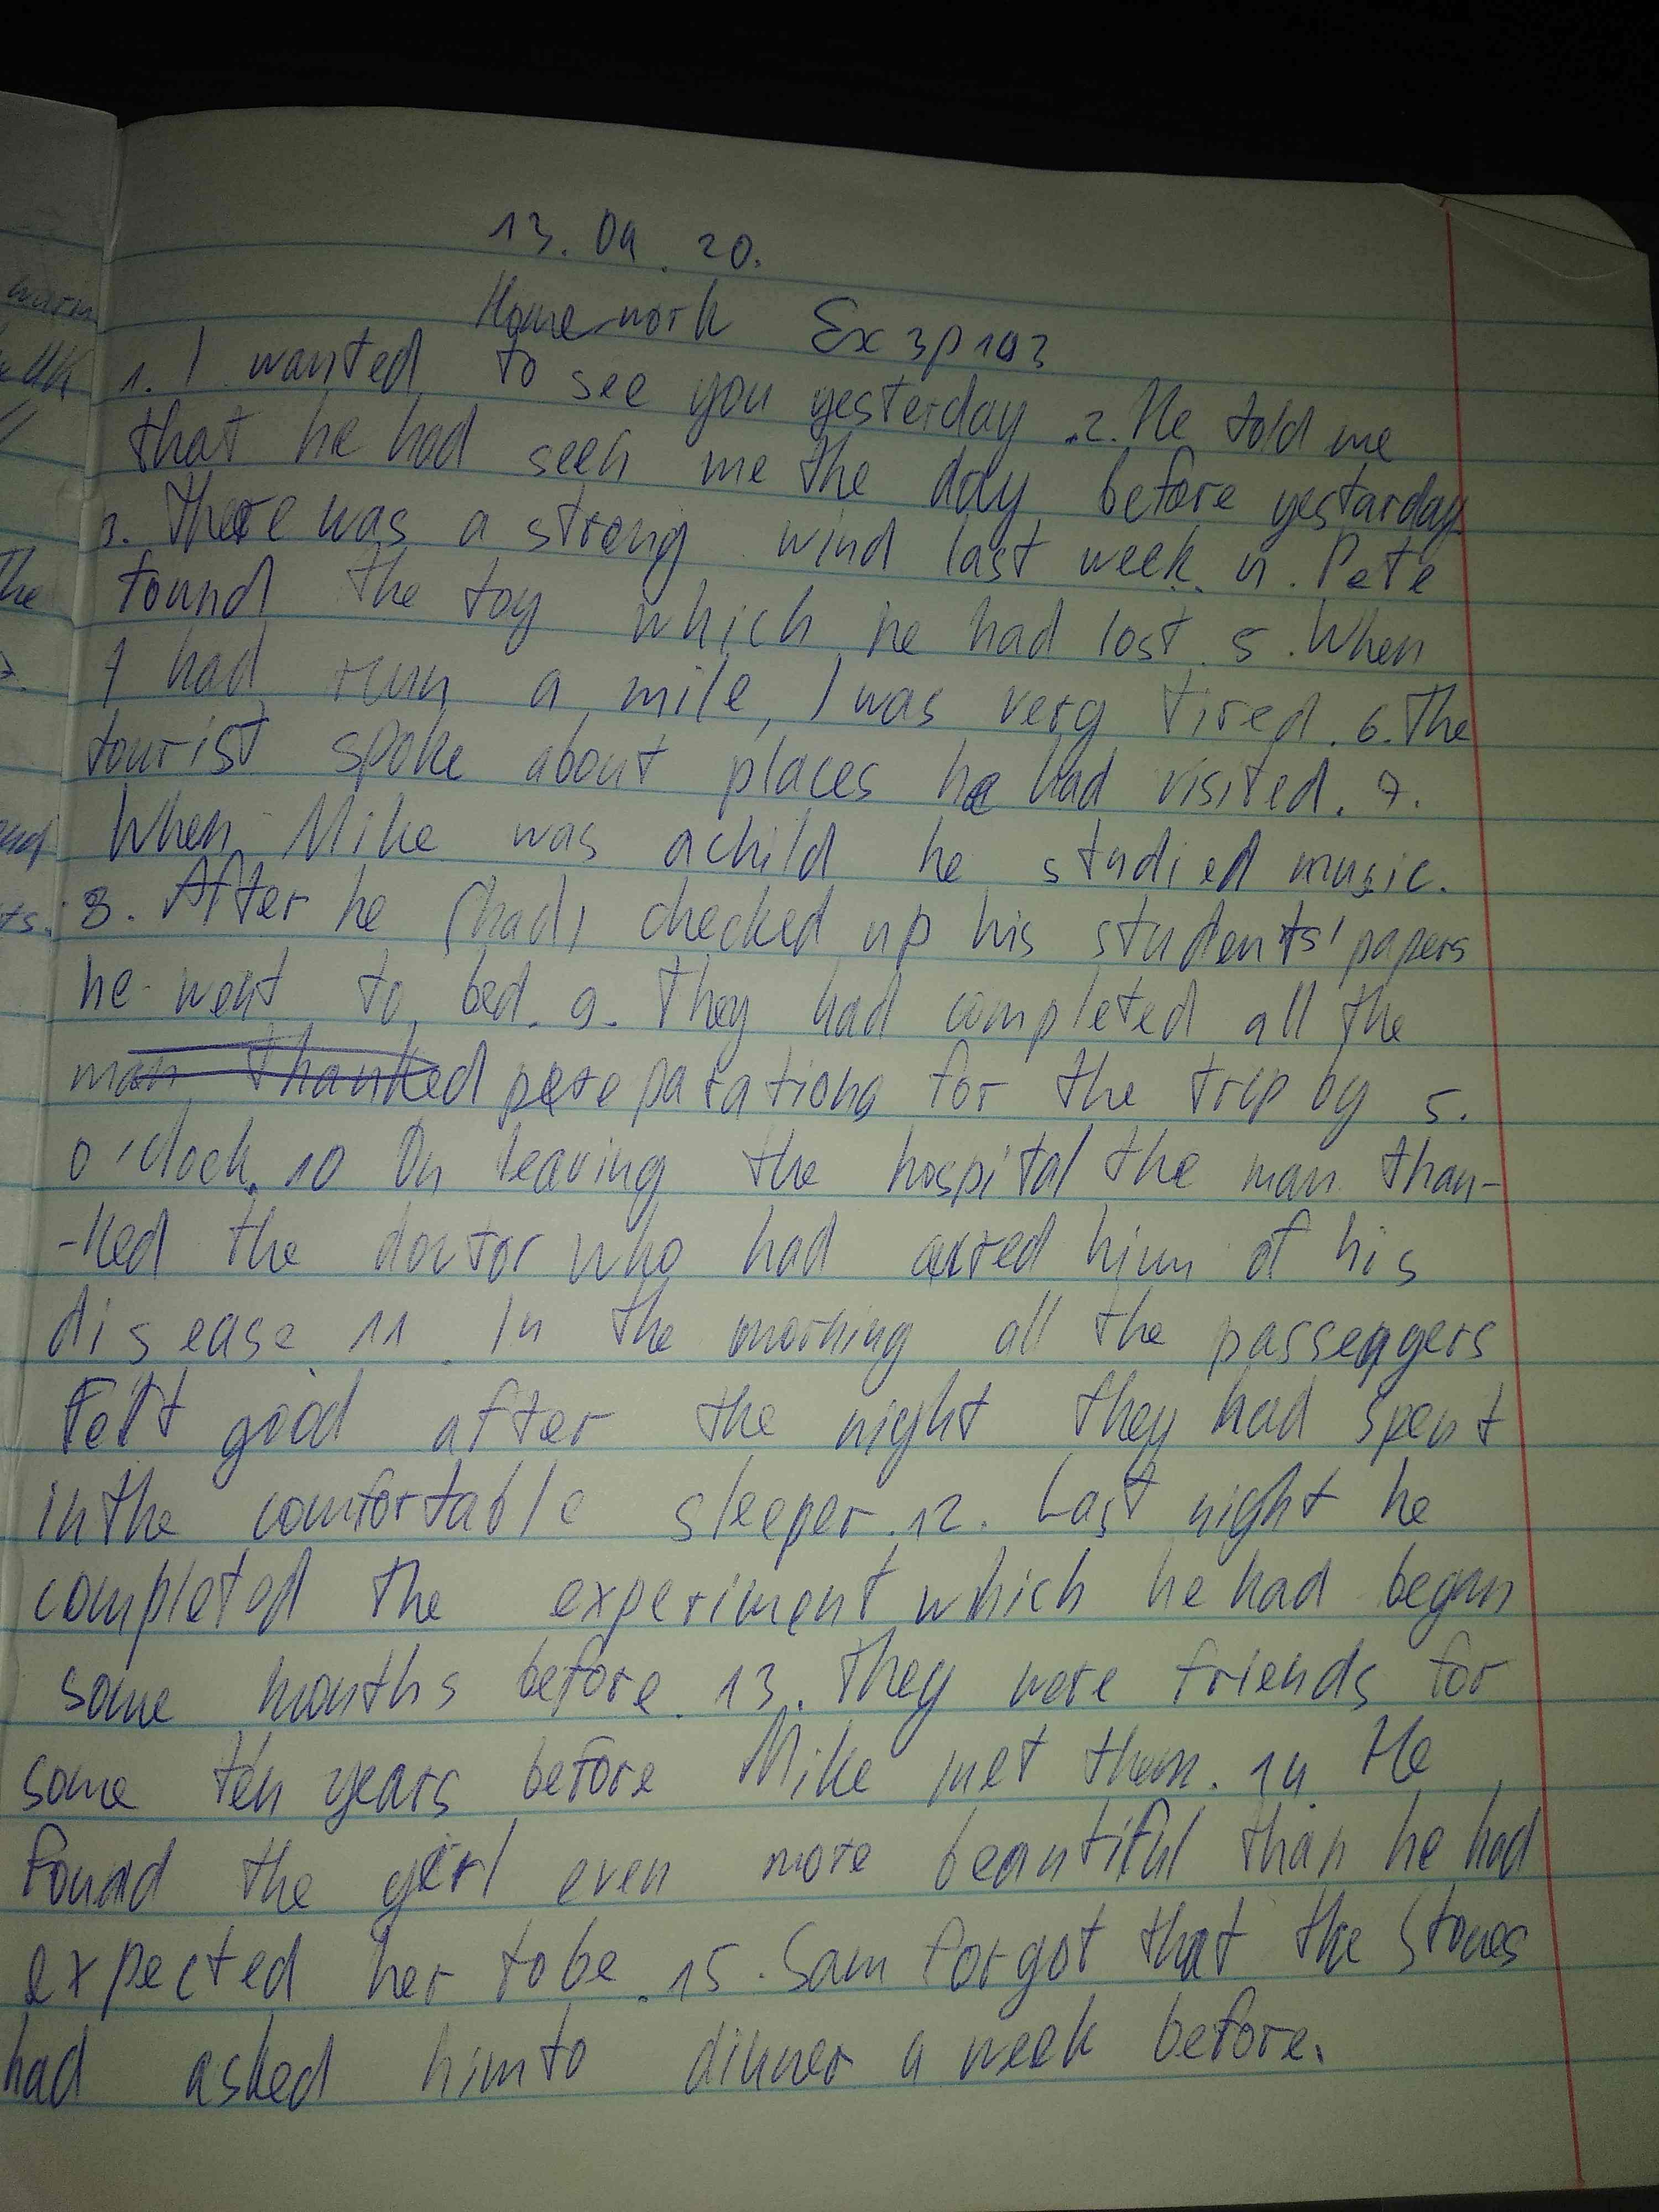 13. 04. 20.
Homework Ex 3p103
1. I wanted to see you yesterday .2. He told me
that he had seen me the day before yestarday
3. There was a strong wind last week. 4. Pete
found the toy which he had lost. 5. When
I had run a mile, I was very tired. 6. The
tourist spoke about places he had visited. 7.
When Mike was a child he studied music.
8. After he (had) checked up his students' papers
he went to bed. 9. They had completed all the
man thanked pereparations for the trip by 5.
o'clock. 10 On leaving the hospital the man than-
-ked the doctor who had cured him of his
disease 11. In the morning all the passengers
Felt good after the night they had spent
in the comfortable sleeper. 12. Last night he
completed the experiment which he had began
some months before. 13. They were friends for
some ten years before Mike met them. 14. He
found the girl even more beautiful than he had
expected her to be. 15. Sam forgot that the Stones
had asked him to dinner a week before.
warm
The